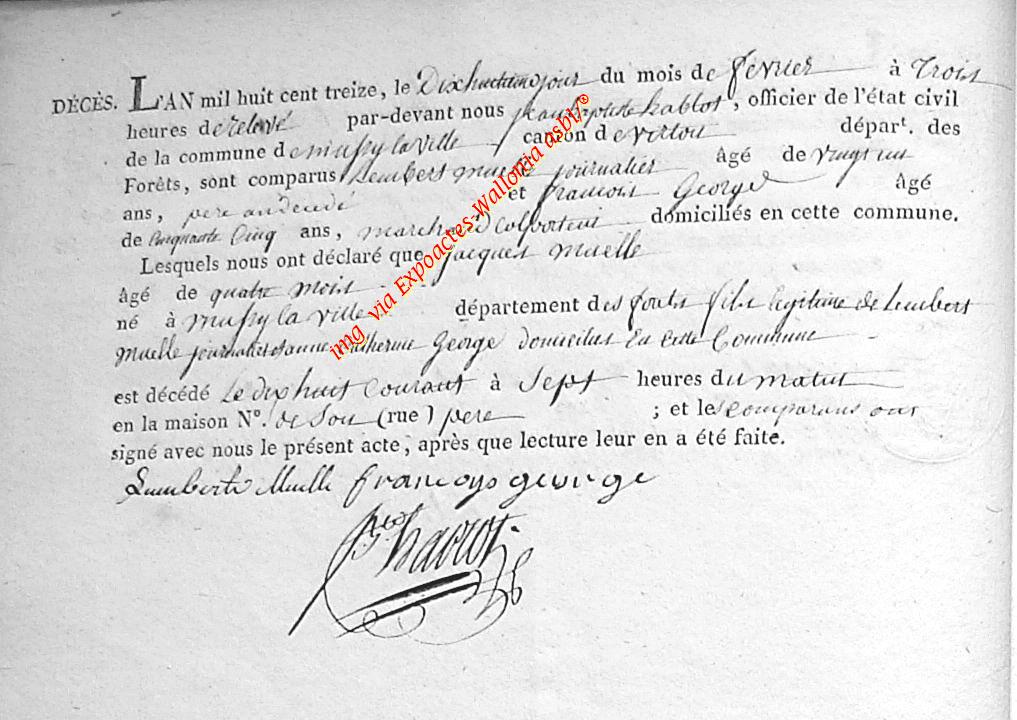 DÉCÈS. L'AN mil huit cent treize, le Dixhuitieme jour du mois de fevrier à Trois
heures de relevé par-devant nous jean baptiste hablot, officier de l'état civil
de la commune de mussy la ville canton de virton départ. des
Forêts, sont comparus Lembert muelle journalier âgé de vingt
ans, pere et francois George âgé
de Cinquante Cinq ans, marchand Colporteur domiciliés en cette commune.
Lesquels nous ont déclaré que jacques muelle
âgé de quatre mois
né à mussy la ville département des forets fils legitime de Lembert
muelle journalier et anne Catherine George domicilies En Cette Commune
est décédé Le dix huit Courant à Sept heures du matin
en la maison N°. de Son (rue) pere ; et les comparans ont
signé avec nous le présent acte, après que lecture leur en a été faite.
Lumberte Muelle francoys george
img via Expoactes-Wallonia asbl®